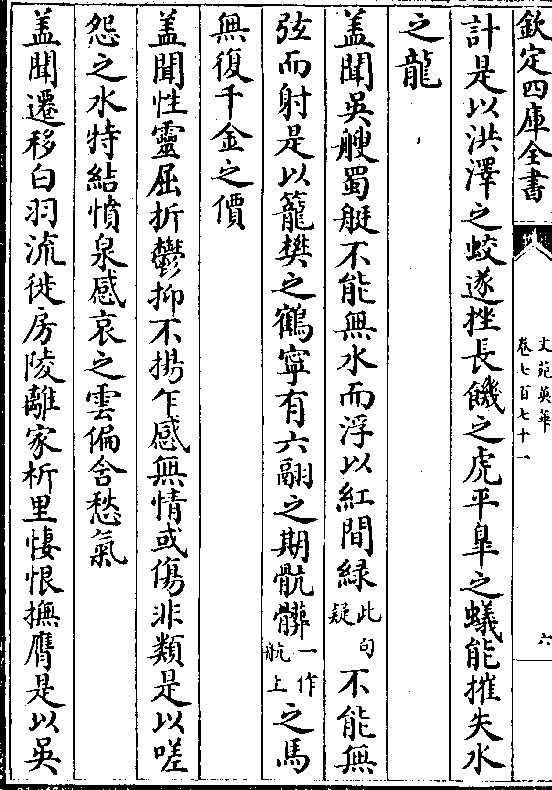 欽定四庫全書
文苑英華
卷七百七十一
六
計是以洪澤之蛟遂挫長饑之虎平臯之蟻能摧失水
之龍
盖聞吳艘蜀艇不能無水而浮以紅間緑此句疑不能無
弦而射是以籠樊之鶴寧有六翮之期骯髒一作骯上之馬
無復千金之價
盖聞性靈屈折鬱抑不揚乍感無情或傷非類是以嗟
怨之水特結憤泉感哀之雲偏含愁氣
盖聞遷移白羽流徙房陵離家析里悽恨撫膺是以吳